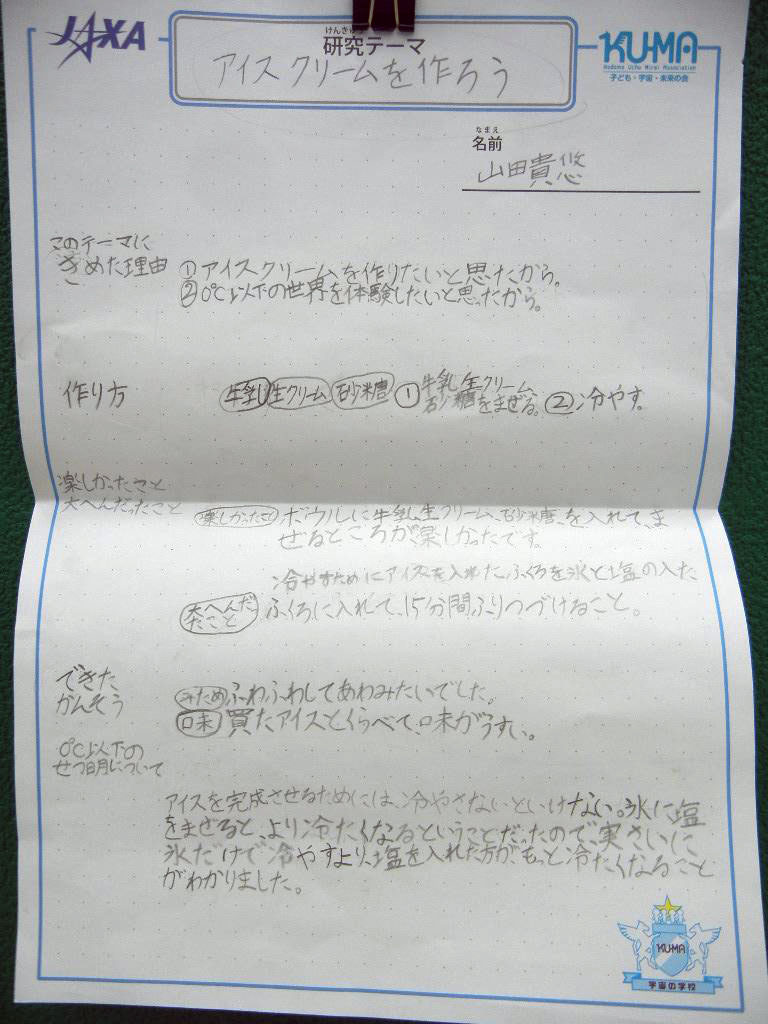 JAXA
けんきゅう
研究テーマ
アイスクリームを作ろう
KU-MA
Kodomo Uchu Mirai Association
子ども・宇宙・未来の会
なまえ
名前
山田貴悠
このテーマに
きめた理由
①アイスクリームを作りたいと思たから。
②0℃以下の世界を体験したいと思ったから。
作り方
牛乳 生クリーム 砂糖 ①牛乳生クリーム、
砂糖をまぜる。②冷やす。
楽しかったこと
大へんだったこと
楽しかったこと ボウルに牛乳、生クリーム、砂糖、を入れて、ま
ぜるところが、楽しかったです。
冷やすためにアイスを入れた、ふくろを氷と塩の入た
大へんだ
たこと
ふくろに入れて、15分間ふりつづけること。
できた
かんそう
みため ふわふわしてあわみたいでした。
口味 買たアイスとくらべて、口味がうすい。
0℃以下の
せつ明について
アイスを完成させるためには、冷やさないといけない。氷に塩
をまぜると、より冷たくなるということだったので、実さいに
氷だけで冷やすより、塩を入れた方が、もっと冷たくなること
がわかりました。
KUMA
宇宙の学校